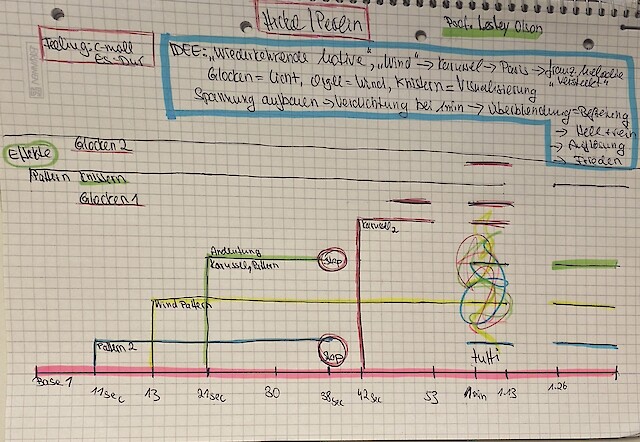 Hickel/Perlin
Poet: Lesley Olson
Feeling: c-moll
Es-Dur
IDEE: „Wiederkehrende Motive", „Wind" → Karussel → Paris → franz. Melodie
"versteckt"
Glocken = Licht, Orgel = Wind, Knistern = Visualisierung
Spannung aufbauen → Verdichtung bei 1min → Überblendung = Befreiung
→ Hell + rein
→ Auflösung
→ Frieden
Effekte
Glocken 2
Pattern Knistern
Glocken 1
Karussel 2
Andeutung
Karussell, Pattern
Stop
Wind Pattern
Pattern 2
Stop
tutti
Base 1
11sec 13 21sec 30 38sec 42sec 53 1min 1.13 1.26